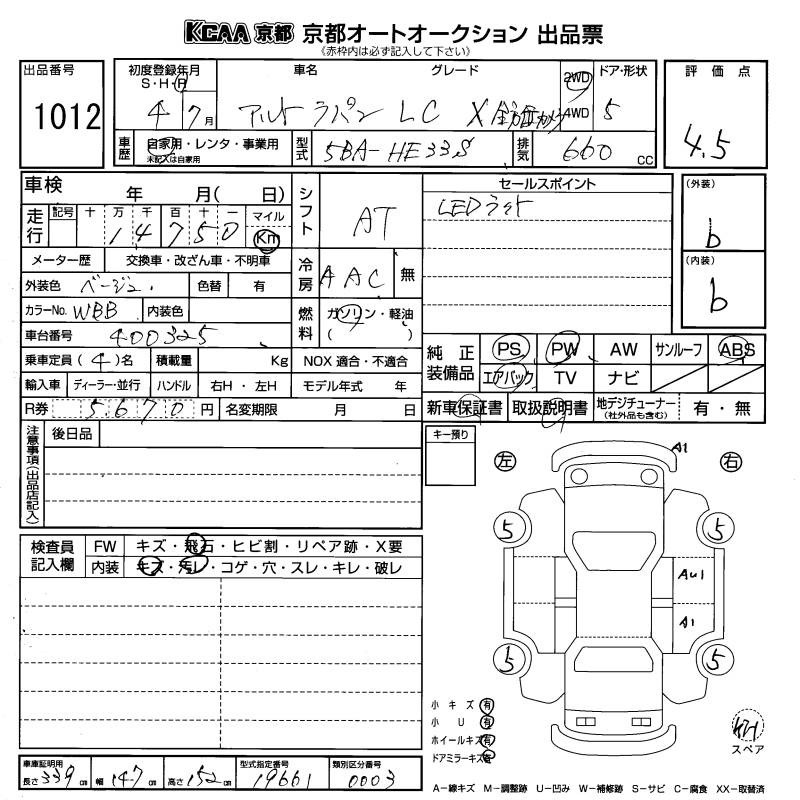 KCAA 京都 京都オートオークション 出品票
(赤枠内は必ず記入して下さい)
出品番号 1012
初度登録年月 S・H・R 4 7月
車名 グレード アルト ラパン LC X 全方位カメラ
2WD 4WD
ドア・形状 5
評価点 4.5
車歴 自家用・レンタ・事業用 未記入は自家用
型式 5BA-HE33S
排気 660 CC
車検 年 月( 日)
シフト AT
セールスポイント
LEDライト
(外装) b
(内装) b
走行 記号 十 万 千 百 十 一 マイル
14750 Km
メーター歴 交換車・改ざん車・不明車
冷房 AAC 無
外装色 ベージュ 色替 有
カラーNo. WBB 内装色
燃料 ガソリン・軽油 ( )
車台番号 400325
乗車定員 (4)名 積載量 Kg NOX 適合・不適合
輸入車 ディーラー・並行 ハンドル 右H・左H モデル年式 年
R券 5,670 円 名変期限 月 日
純正装備品 PS PW AW サンルーフ ABS
エアバック TV ナビ
新車保証書 取扱説明書 地デジチューナー (社外品も含む) 有・無
注意事項(出品店記入) 後日品
キー預り
左 右
A1
5 5
AU1
A1
5 5
検査員記入欄 FW キズ・飛石・ヒビ割・リペア跡・X要
内装 キズ・汚レ・コゲ・穴・スレ・キレ・破レ
小キズ 有
小U 有
ホイールキズ 有
ドアミラーキズ 有
スペア
車庫証明用 長さ 339 cm 幅 147 cm 高さ 152 cm
型式指定番号 19661
類別区分番号 0003
A-線キズ M-調整跡 U-凹み W-補修跡 S-サビ C-腐食 XX-取替済